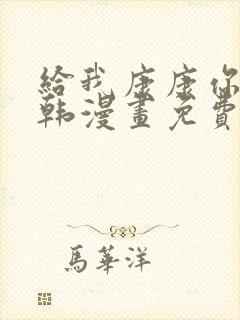 給我康康你
韩漫畫免費
馬華洋